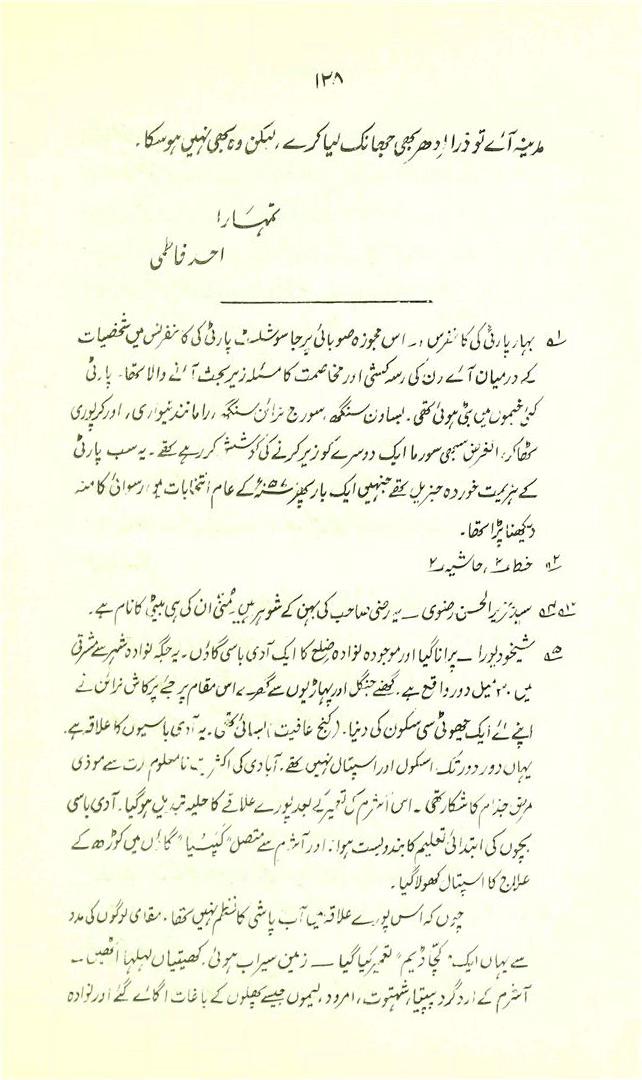 ۱۲۸
مدینہ آئے تو ذرا اِدھر بھی جھانک لیا کرے، لیکن وہ بھی نہیں ہو سکا۔
تمہارا
احمد فاطمی
۱؎ بہار پارٹی کی کانفرنس :۔ اس مجوزہ صوبائی پرجا سوشلسٹ پارٹی کی کانفرنس میں شخصیات
کے درمیان آئے دن کی رسہ کشی اور مخاصمت کا مسئلہ زیر بحث آنے والا تھا۔ پارٹی
کئی خیموں میں بٹی ہوئی تھی۔ بساون سنگھ، سورج نرائن سنگھ، رامانند تیواری، اور کرپوری
ٹھاکر، الغرض سبھی سورما ایک دوسرے کو زیر کرنے کی کوشش کر رہے تھے۔ یہ سب پارٹی
کے ہزیمت خوردہ جنریل تھے جنہیں ایک بار پھر ۵۷ء کے عام انتخابات میں رسوائی کا منہ
دیکھنا پڑا تھا۔
۲؎ خط ۲، حاشیہ ۲
۳؎ ۴؎ سید زبیر الحسن رضوی — یہ رضی صاحب کی بہن کے شوہر ہیں۔ مُنّی ان کی ہی بیٹی کا نام ہے۔
۵؎ شیخودیورا — پرانا گیا اور موجودہ نوادہ ضلع کا ایک آدی باسی گاؤں۔ یہ جگہ نوادہ شہر سے مشرق
میں ۳۰ میل دور واقع ہے۔ گھنے جنگل اور پہاڑیوں سے گھرے اس مقام پر جئے پرکاش نرائن نے
اپنے لئے ایک چھوٹی سی سکون کی دنیا۔ (کنج عافیت) بسائی تھی۔ یہ آدی باسیوں کا علاقہ ہے۔
یہاں دور دور تک اسکول اور اسپتال نہیں تھے۔ آبادی کی اکثریت نامعلوم مدت سے موذی
مرض جذام کا شکار تھی۔ اس آشرم کی تعمیر کے بعد پورے علاقے کا حلیہ تبدیل ہو گیا۔ آدی باسی
بچوں کی ابتدائی تعلیم کا بندوبست ہوا۔ اور آشرم سے متصل "کپسیا" گاؤں میں کوڑھ کے
علاج کا اسپتال کھولا گیا۔
چوں کہ اس پورے علاقہ میں آب پاشی کا نظم نہیں تھا، مقامی لوگوں کی مدد
سے یہاں ایک "کچا ڈیم" تعمیر کیا گیا — زمین سیراب ہوئی، کھیتیاں لہلہا اٹھیں —
آشرم کے اردگرد پپیتا، شہتوت، امرود، لیموں جیسے پھلوں کے باغات اگائے گئے اور نوادہ